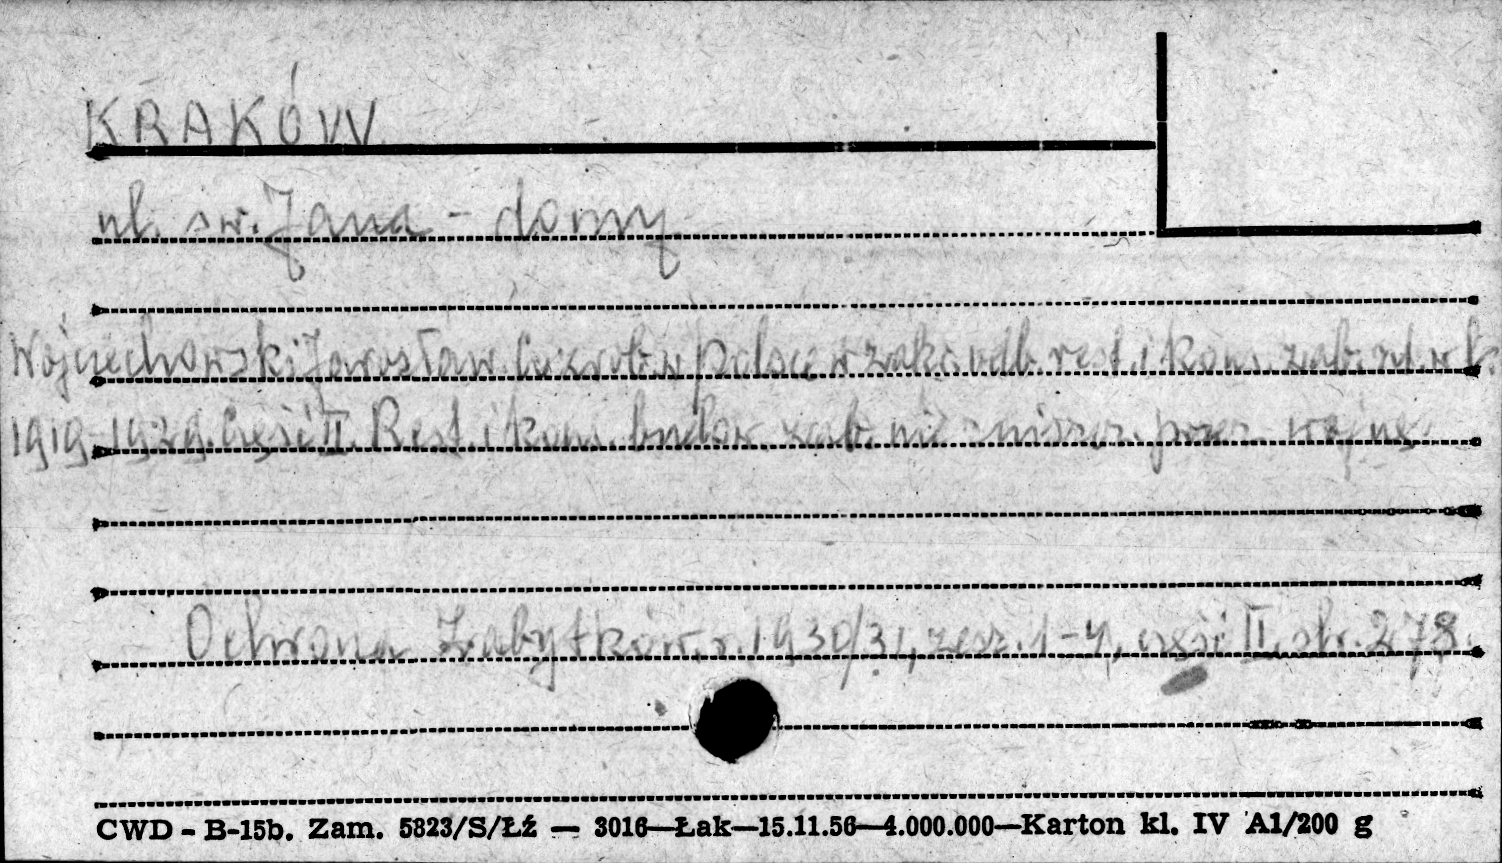 KRAKÓW
ul. św. Jana - domy
Wojciechowski Jarosław. Co zrob. w Polsce w zakr. odb. rest. i kons. zab. szt. w l.
1919-1929. Część II. Rest. i kons. budow. zab. nie zniszcz. przez wojnę.
Ochrona Zabytków. r. 1930/31, zesz. 1-4, część II. str. 278.
CWD - B-15b. Zam. 5823/S/Łź — 3016—Łak—15.11.56—4.000.000—Karton kl. IV A1/200 g